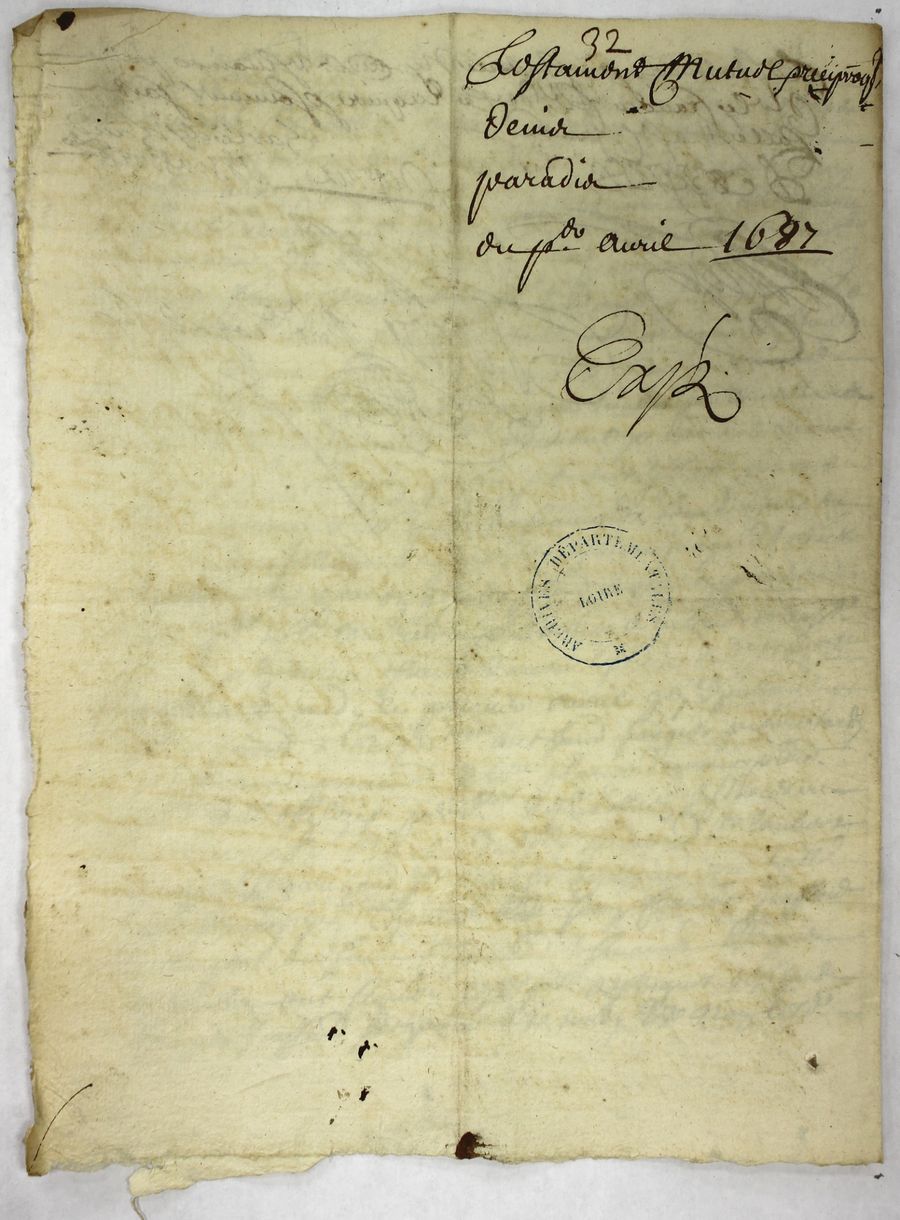 32
Testament Mutuel
Denis
paradis
du p.er avril 1687
Exp.
ARCHIVES DÉPARTEMENTALES
LOIRE